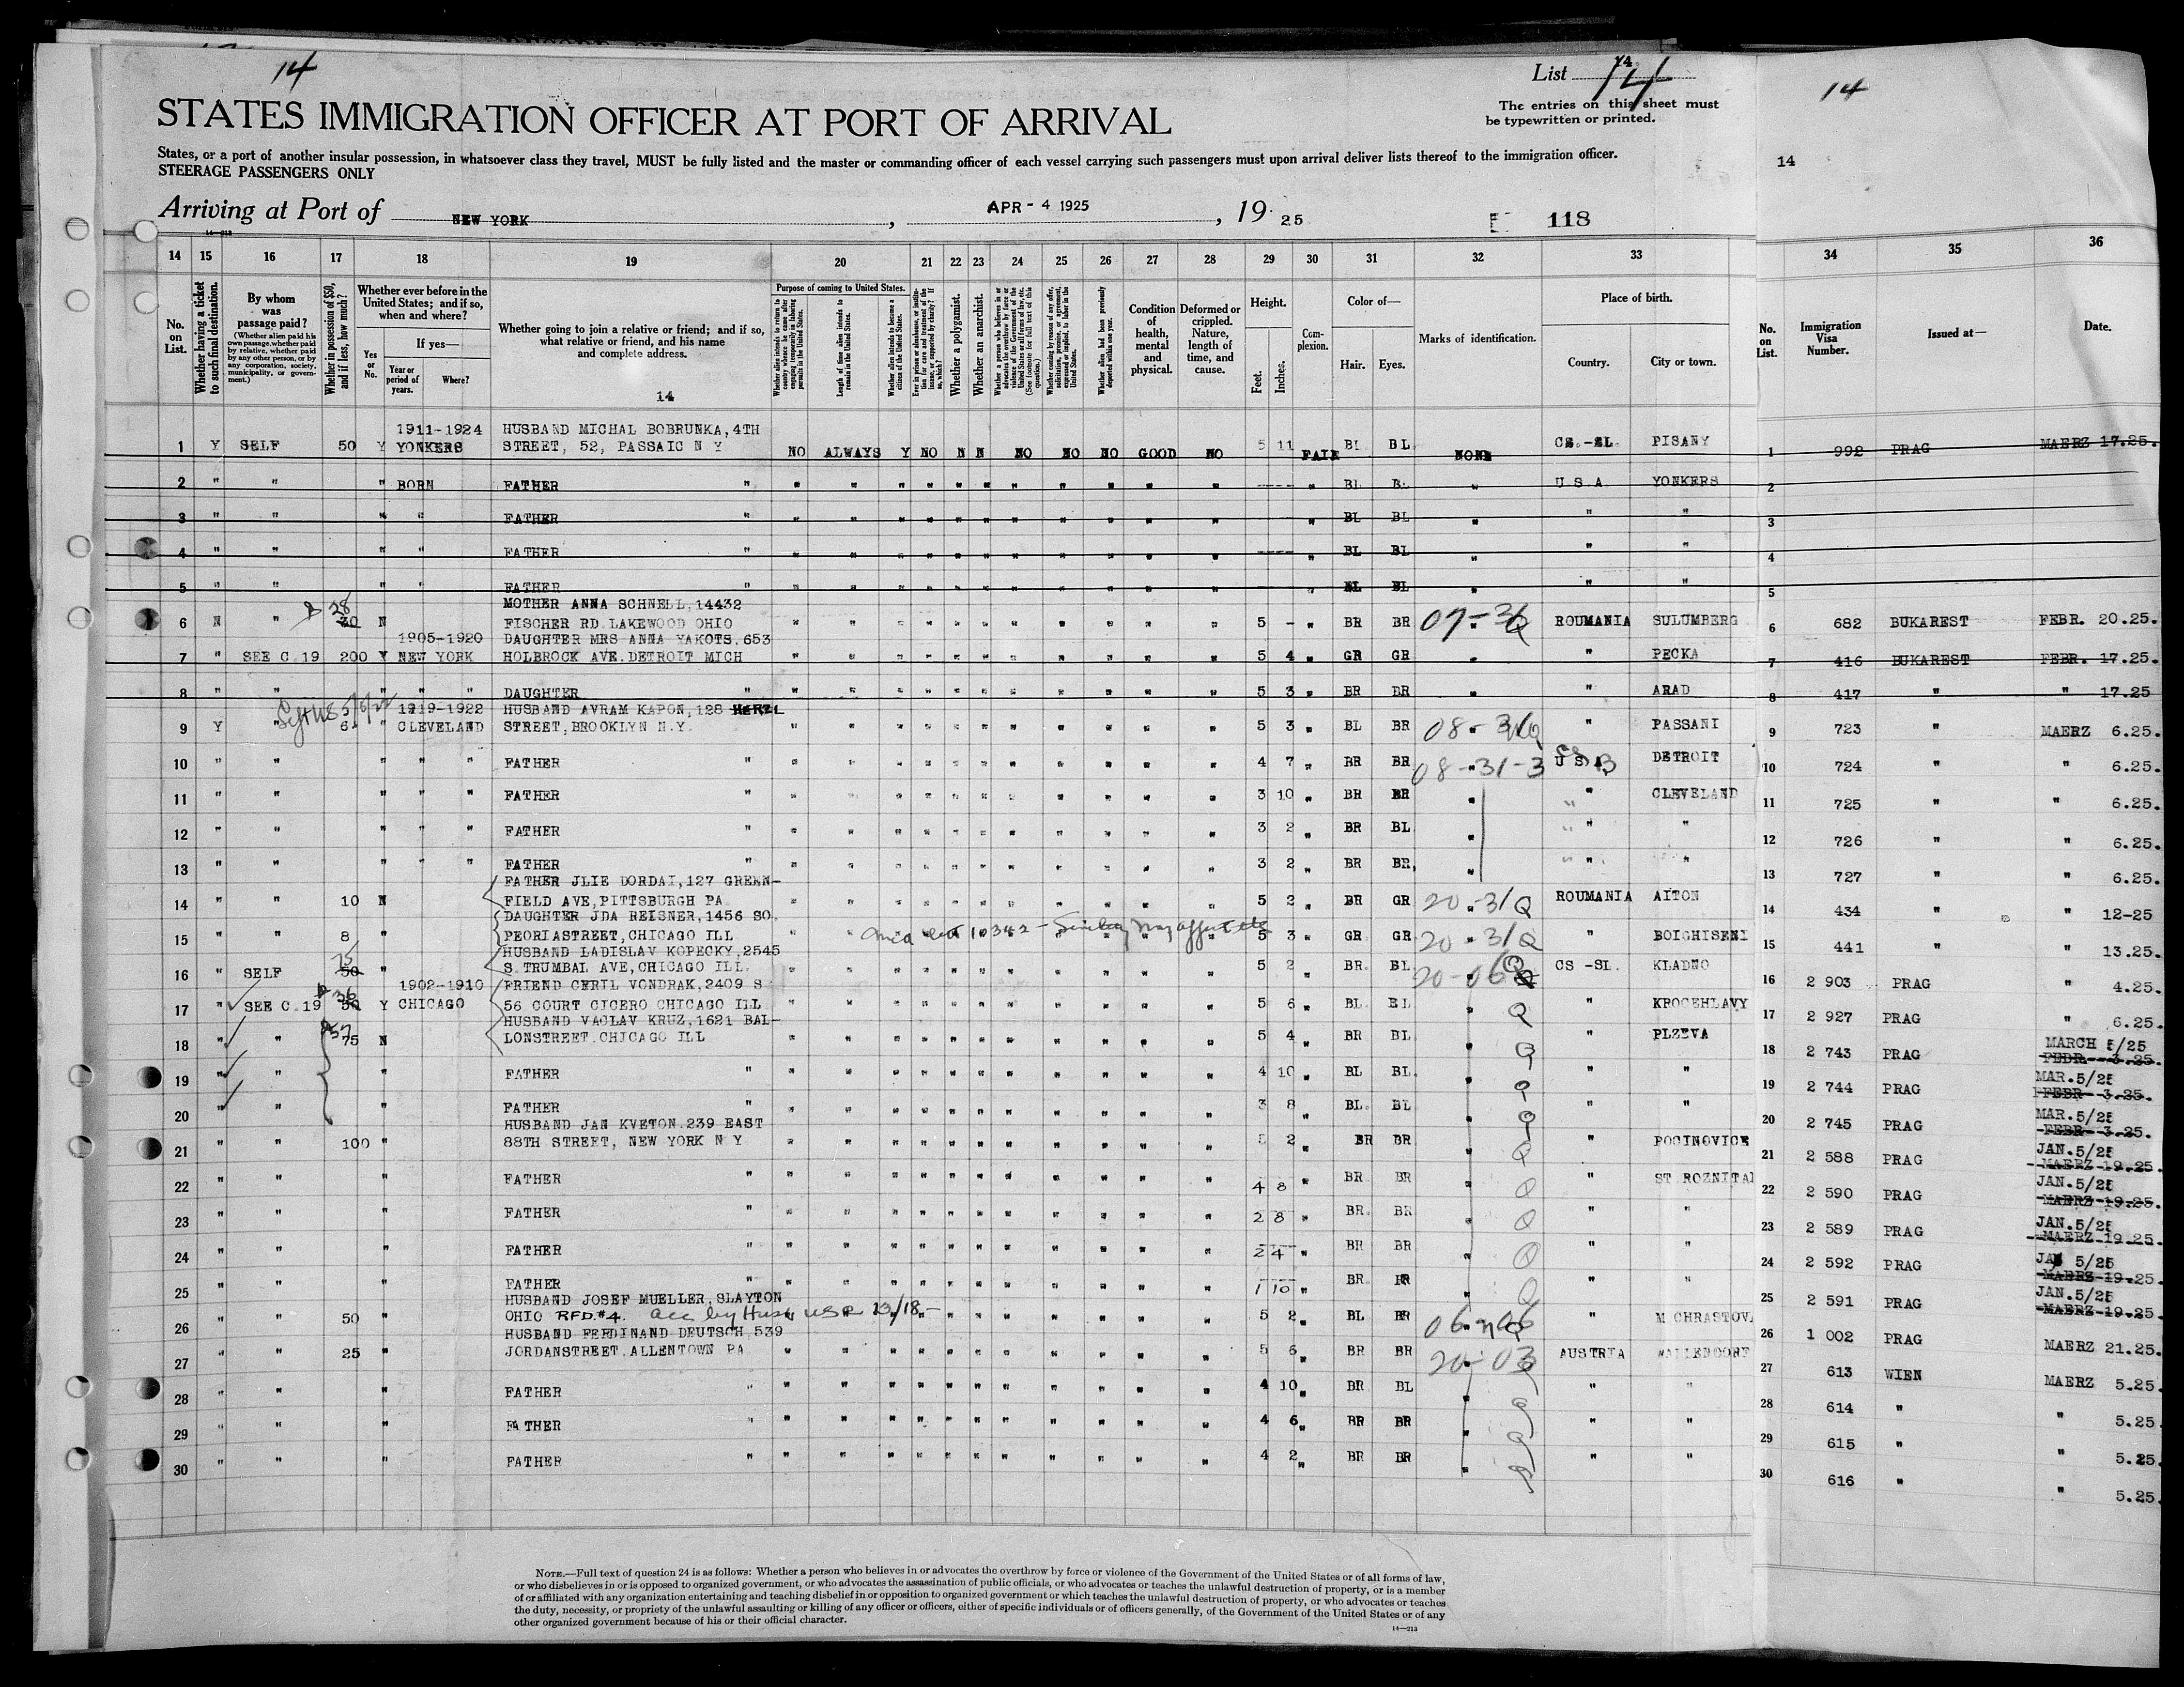 14
List 14
14
The entries on this sheet must
be typewritten or printed.
STATES IMMIGRATION OFFICER AT PORT OF ARRIVAL
14
States, or a port of another insular possession, in whatsoever class they travel, MUST be fully listed and the master or commanding officer of each vessel carrying such passengers must upon arrival deliver lists thereof to the immigration officer.
STEERAGE PASSENGERS ONLY
Arriving at Port of NEW YORK, APR - 4 1925, 19 25 118
14 15 16 17 18 19 20 21 22 23 24 25 26 27 28 29 30 31 32 33 34 35 36
No. on List.
Whether having a ticket to such final destination.
By whom was passage paid?
(Whether alien paid his own passage, whether paid by relative, whether paid by any other person, or by any corporation, society, municipality, or government.)
Whether in possession of $50, and if less, how much?
Whether ever before in the United States; and if so, when and where?
Yes or No.
If yes—
Year or period of years.
Where?
Whether going to join a relative or friend; and if so, what relative or friend, and his name and complete address.
14
Purpose of coming to United States.
Length of time alien intends to remain in the United States.
Whether alien intends to become a citizen of the United States.
Whether a polygamist.
Whether an anarchist.
Whether alien had been previously deported within one year.
Condition of health, mental and physical.
Deformed or crippled. Nature, length of time, and cause.
Height.
Feet. Inches.
Complexion.
Color of—
Hair. Eyes.
Marks of identification.
Place of birth.
Country. City or town.
No. on List.
Immigration Visa Number.
Issued at—
Date.
1911-1924 HUSBAND MICHAL BOBRUNKA, 4TH
1 Y SELF 50 Y YONKERS STREET, 52, PASSAIC N Y NO ALWAYS Y NO N N NO NO NO GOOD NO 5 11 FAIR BL BL NONE CS.-SL. PISANY 1 992 PRAG MAERZ 17.25.
2 " " " BORN FATHER " " " " " " " " " " " " ---- " BL BL " U S A YONKERS 2
3 " " " " FATHER " " " " " " " " " " " " " BL BL " " " 3
4 " " " " FATHER " " " " " " " " " " " ---- " BL BL " " " 4
5 " " " " FATHER " " " " " " " " " " " " " BL BL " " " 5
MOTHER ANNA SCHNELL, 14432
6 N " 28 N FISCHER RD. LAKEWOOD OHIO " " " " " " " " " " " 5 - " BR BR ROUMANIA SULUMBERG 6 682 BUKAREST FEBR. 20.25.
1905-1920 DAUGHTER MRS ANNA YAKOTS, 653
7 " SEE C.19 200 Y NEW YORK HOLBROCK AVE. DETROIT MICH " " " " " " " " " " " 5 4 " GR GR " " PECKA 7 416 BUKAREST FEBR. 17.25.
8 " " " " " DAUGHTER " " " " " " " " " " " " 5 3 " BR BR " " ARAD 8 417 " " 17.25
1919-1922 HUSBAND AVRAM KAPON, 128 HERZL
9 Y " 6. " CLEVELAND STREET, BROOKLYN N.Y. " " " " " " " " " " " 5 3 " BL BR " PASSANI 9 723 " MAERZ 6.25.
10 " " " " " FATHER " " " " " " " " " " " " 4 7 " BR BR 08-31-3 U S A DETROIT 10 724 " " 6.25.
11 " " " " " FATHER " " " " " " " " " " " " 3 10 " BR BR " " CLEVELAND 11 725 " " 6.25.
12 " " " " " FATHER " " " " " " " " " " " " 3 2 " BR BL " " " 12 726 " " 6.25.
13 " " " " " FATHER " " " " " " " " " " " " 3 2 " BR BR. " " " 13 727 " " 6.25.
FATHER JLIE DORDAI, 127 GREEN-
14 " " 10 N FIELD AVE, PITTSBURGH PA. " " " " " " " " " " " 5 2 " BR GR 20-31 Q ROUMANIA AITON 14 434 " " 12-25
DAUGHTER JDA REISNER, 1456 SO.
15 " " 8 " PEORIASTREET, CHICAGO ILL " " " " " " " " " " " 5 3 " GR GR 20-31 Q " BOIGHISENI 15 441 " " 13.25.
HUSBAND LADISLAV KOPECKY, 2545
16 " SELF 75 50 " S. TRUMBAL AVE, CHICAGO ILL. " " " " " " " " " " " 5 2 " BR. BL 20-06 Q CS -SL. KLADNO 16 2 903 PRAG " 4.25.
1902-1910 FRIEND CYRIL VONDRAK, 2409 S
17 " SEE C.19 36 Y CHICAGO 56 COURT CICERO CHICAGO ILL " " " " " " " " " " " 5 6 " BL. BL " Q " KROCEHLAVY 17 2 927 PRAG " 6.25.
HUSBAND VACLAV KRUZ, 1621 BAL-
18 " " 75 N LONSTREET. CHICAGO ILL " " " " " " " " " " " 5 4 " BR BL " Q " PLZEVA 18 2 743 PRAG MARCH 5/25 FEBR. 3.25.
19 " " " FATHER " " " " " " " " " " " " 4 10 " BL BL. " Q " " 19 2 744 PRAG MAR. 5/25 FEBR 3.25.
20 " " " FATHER " " " " " " " " " " " " 3 8 " BL. BL " Q " " 20 2 745 PRAG MAR. 5/25 FEBR 3.25.
HUSBAND JAN KVETON. 239 EAST
21 " " 100 " 88TH STREET, NEW YORK N Y " " " " " " " " " " " 5 2 " BR BR " Q " POCINOVICE 21 2 588 PRAG JAN. 5/25 MAERZ 19.25.
22 " " " FATHER " " " " " " " " " " " " 4 8 " BR. BR " Q " ST ROZNITAL 22 2 590 PRAG JAN. 5/25 MAERZ 19.25.
23 " " " FATHER " " " " " " " " " " " 2 8 " BR. BR " Q " " 23 2 589 PRAG JAN. 5/25 MAERZ 19.25.
24 " " " FATHER " " " " " " " " " " " " 2 4 " BR BR " Q " " 24 2 592 PRAG JAN 5/25 MAERZ 19.25.
25 " " " FATHER " " " " " " " " " " " " 1 10 " BR. BR Q " " 25 2 591 PRAG JAN. 5/25 MAERZ 19.25.
HUSBAND JOSEF MUELLER, SLAYTON
26 " " 50 " OHIO RFD.#4. " " " " " " " 5 2 " BL BR " M CHRASTOVA 26 1 002 PRAG MAERZ 21.25.
HUSBAND FERDINAND DEUTSCH, 539
27 " " 25 " JORDANSTREET. ALLENTOWN PA " " " " " " " " " " " 5 6 " BR BR 20-03 AUSTRIA WALLENDORF 27 613 WIEN MAERZ 5.25.
28 " " " FATHER " " " " " " " " " " " " 4 10 " BR BL " " " 28 614 " " 5.25.
29 " " " FATHER " " " " " " " " " " " " 4 6 " BR BR " " " 29 615 " " 5.25.
30 " " " FATHER " " " " " " " " " " " " 4 2 " BR BR " " " 30 616 " " 5.25.
NOTE.—Full text of question 24 is as follows: Whether a person who believes in or advocates the overthrow by force or violence of the Government of the United States or of all forms of law,
or who disbelieves in or is opposed to organized government, or who advocates the assassination of public officials, or who advocates or teaches the unlawful destruction of property, or is a member
of or affiliated with any organization entertaining and teaching disbelief in or opposition to organized government or which teaches the unlawful destruction of property, or who advocates or teaches
the duty, necessity, or propriety of the unlawful assaulting or killing of any officer or officers, either of specific individuals or of officers generally, of the Government of the United States or of any
other organized government because of his or their official character.
14—213